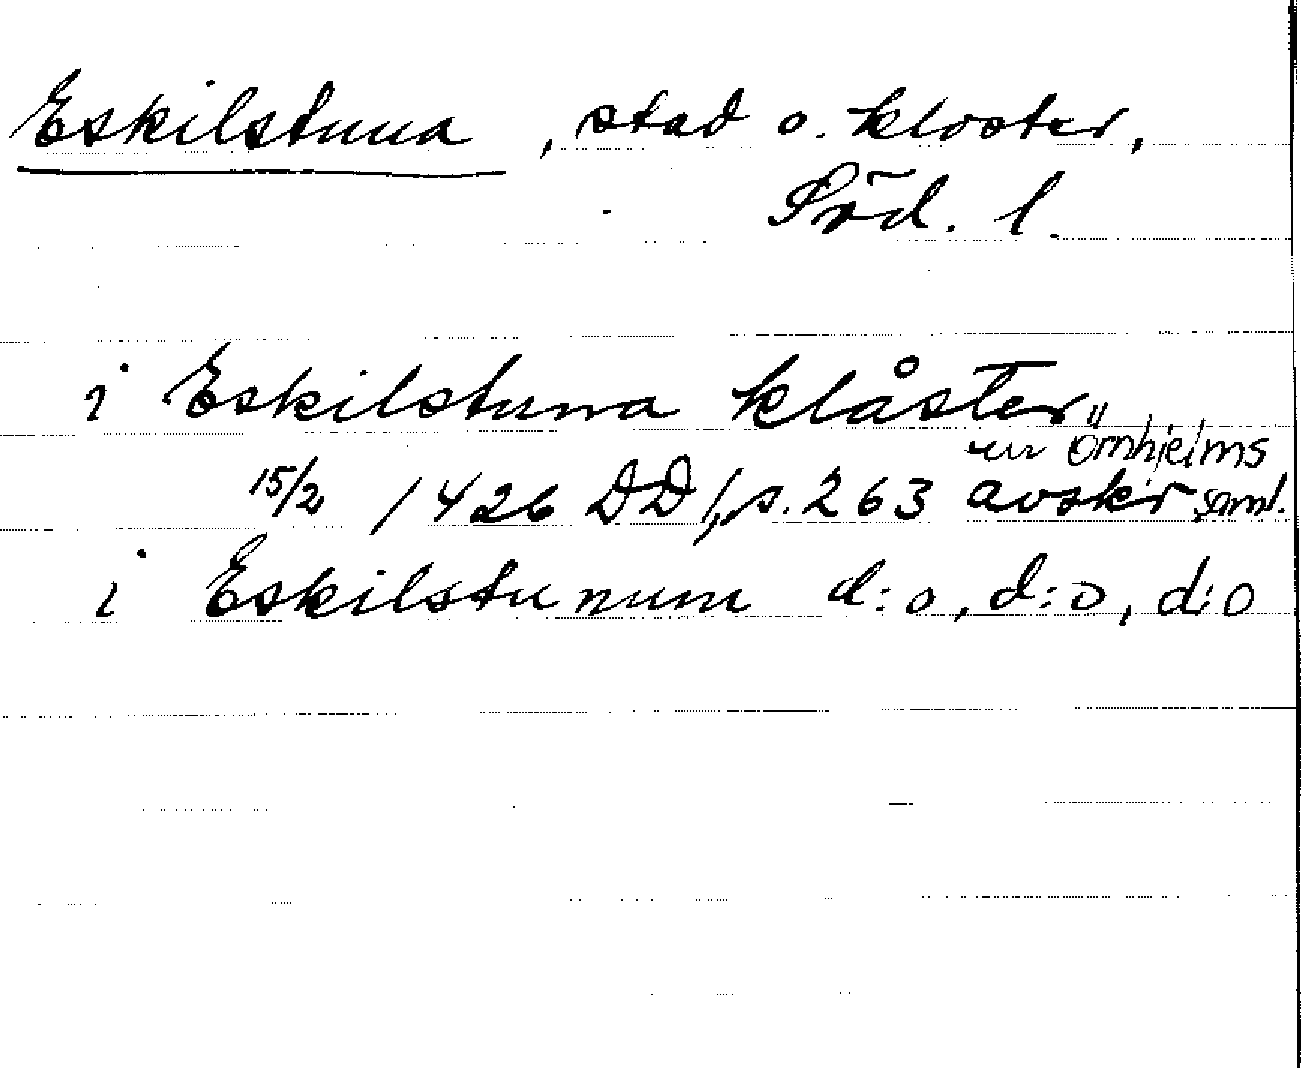 Eskilstuna, stad o. kloster,
Söd. l.
i Eskilstuna klåster
ur Örnhjelms
15/2 1426 DD 1, s. 263 avskr saml.
i Eskilstunum d:o, d:o, d:o